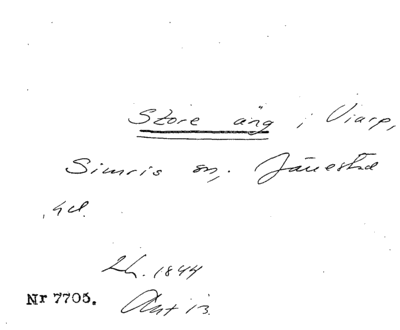 Store äng i Viarp,
Simris sn, Järrestad
hd.
Lh. 1844
Nr 7705. Akt 13.